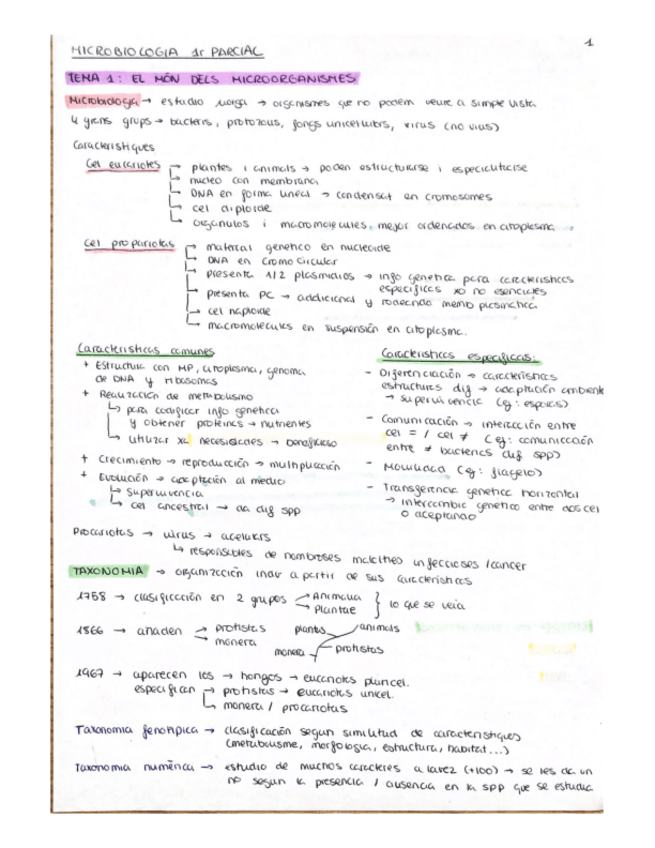 1
MICROBIOLOGIA 1r PARCIAL
TEMA 1: EL MÓN DELS MICROORGANISMES
Microbiologia → estudio → organismes que no podem veure a simple vista
4 grans grups → bacteris, protozous, fongs unicel·lulars, virus (no vius)
Característiques
Cel eucariotes → plantes i animals → poden estructurarse i especialitzarse
→ nucleo con membrana
→ DNA en forma lineal → condensat en cromosomes
→ cel diploide
→ organulos i macromolecules mejor ordenados en citoplasma
Cel procariotas → material genetico en nucleoide
→ DNA en cromo circular
→ presenta 1/2 plasmidios → info genetica para caracteristicas
especificas xo no esenciales
→ presenta PC → addicional y rodeando memb plasmatica
→ cel haploide
→ macromolecules en suspensión en citoplasma.
Caracteristicas comunes
+ Estructura con MP, citoplasma, genoma
de DNA y ribosomas
+ Realización de metabolismo
↳ para codificar info genetica
y obtener proteines → nutrientes
↳ utilizar xa necesidades → beneficioso
+ Crecimiento → reproducción → multiplicación
+ Evolución → adaptación al medio
↳ supervivencia
↳ cel ancestral → da dif spp
Caracteristicas especificas:
- Diferenciación → caracteristicas
estructures dif → adaptación ambiente
→ supervivencia (ej: esporas)
- Comunicación → interacción entre
cel = / cel ≠ (ej: comunicación
entre ≠ bacterias dif spp)
- Movilidad (ej: flagelo)
- Transferencia genetica horizontal
→ intercambio genetico entre dos cel
o aceptando
Procariotas → virus → acelulars
↳ responsables de nombroses malalties infeccioses / cancer
TAXONOMIA → organización indiv a partir de sus caracteristicas
1758 → clasificación en 2 grupos → Animalia
→ Plantae } lo que se veia
1866 → añaden → protistas
→ monera
plantas animals
monera protistas
1967 → aparecen los → hongos → eucariotes pluricel.
especifican → protistas → eucariotas unicel.
→ monera / procariotas
Taxonomia fenotipica → clasificación segun similitud de característiques
(metabolisme, morfologia, estructura, habitat...)
Taxonomia numèrica → estudio de muchos caracteres a la vez (+100) → se les da un
nº segun la presencia / ausencia en la spp que se estudia